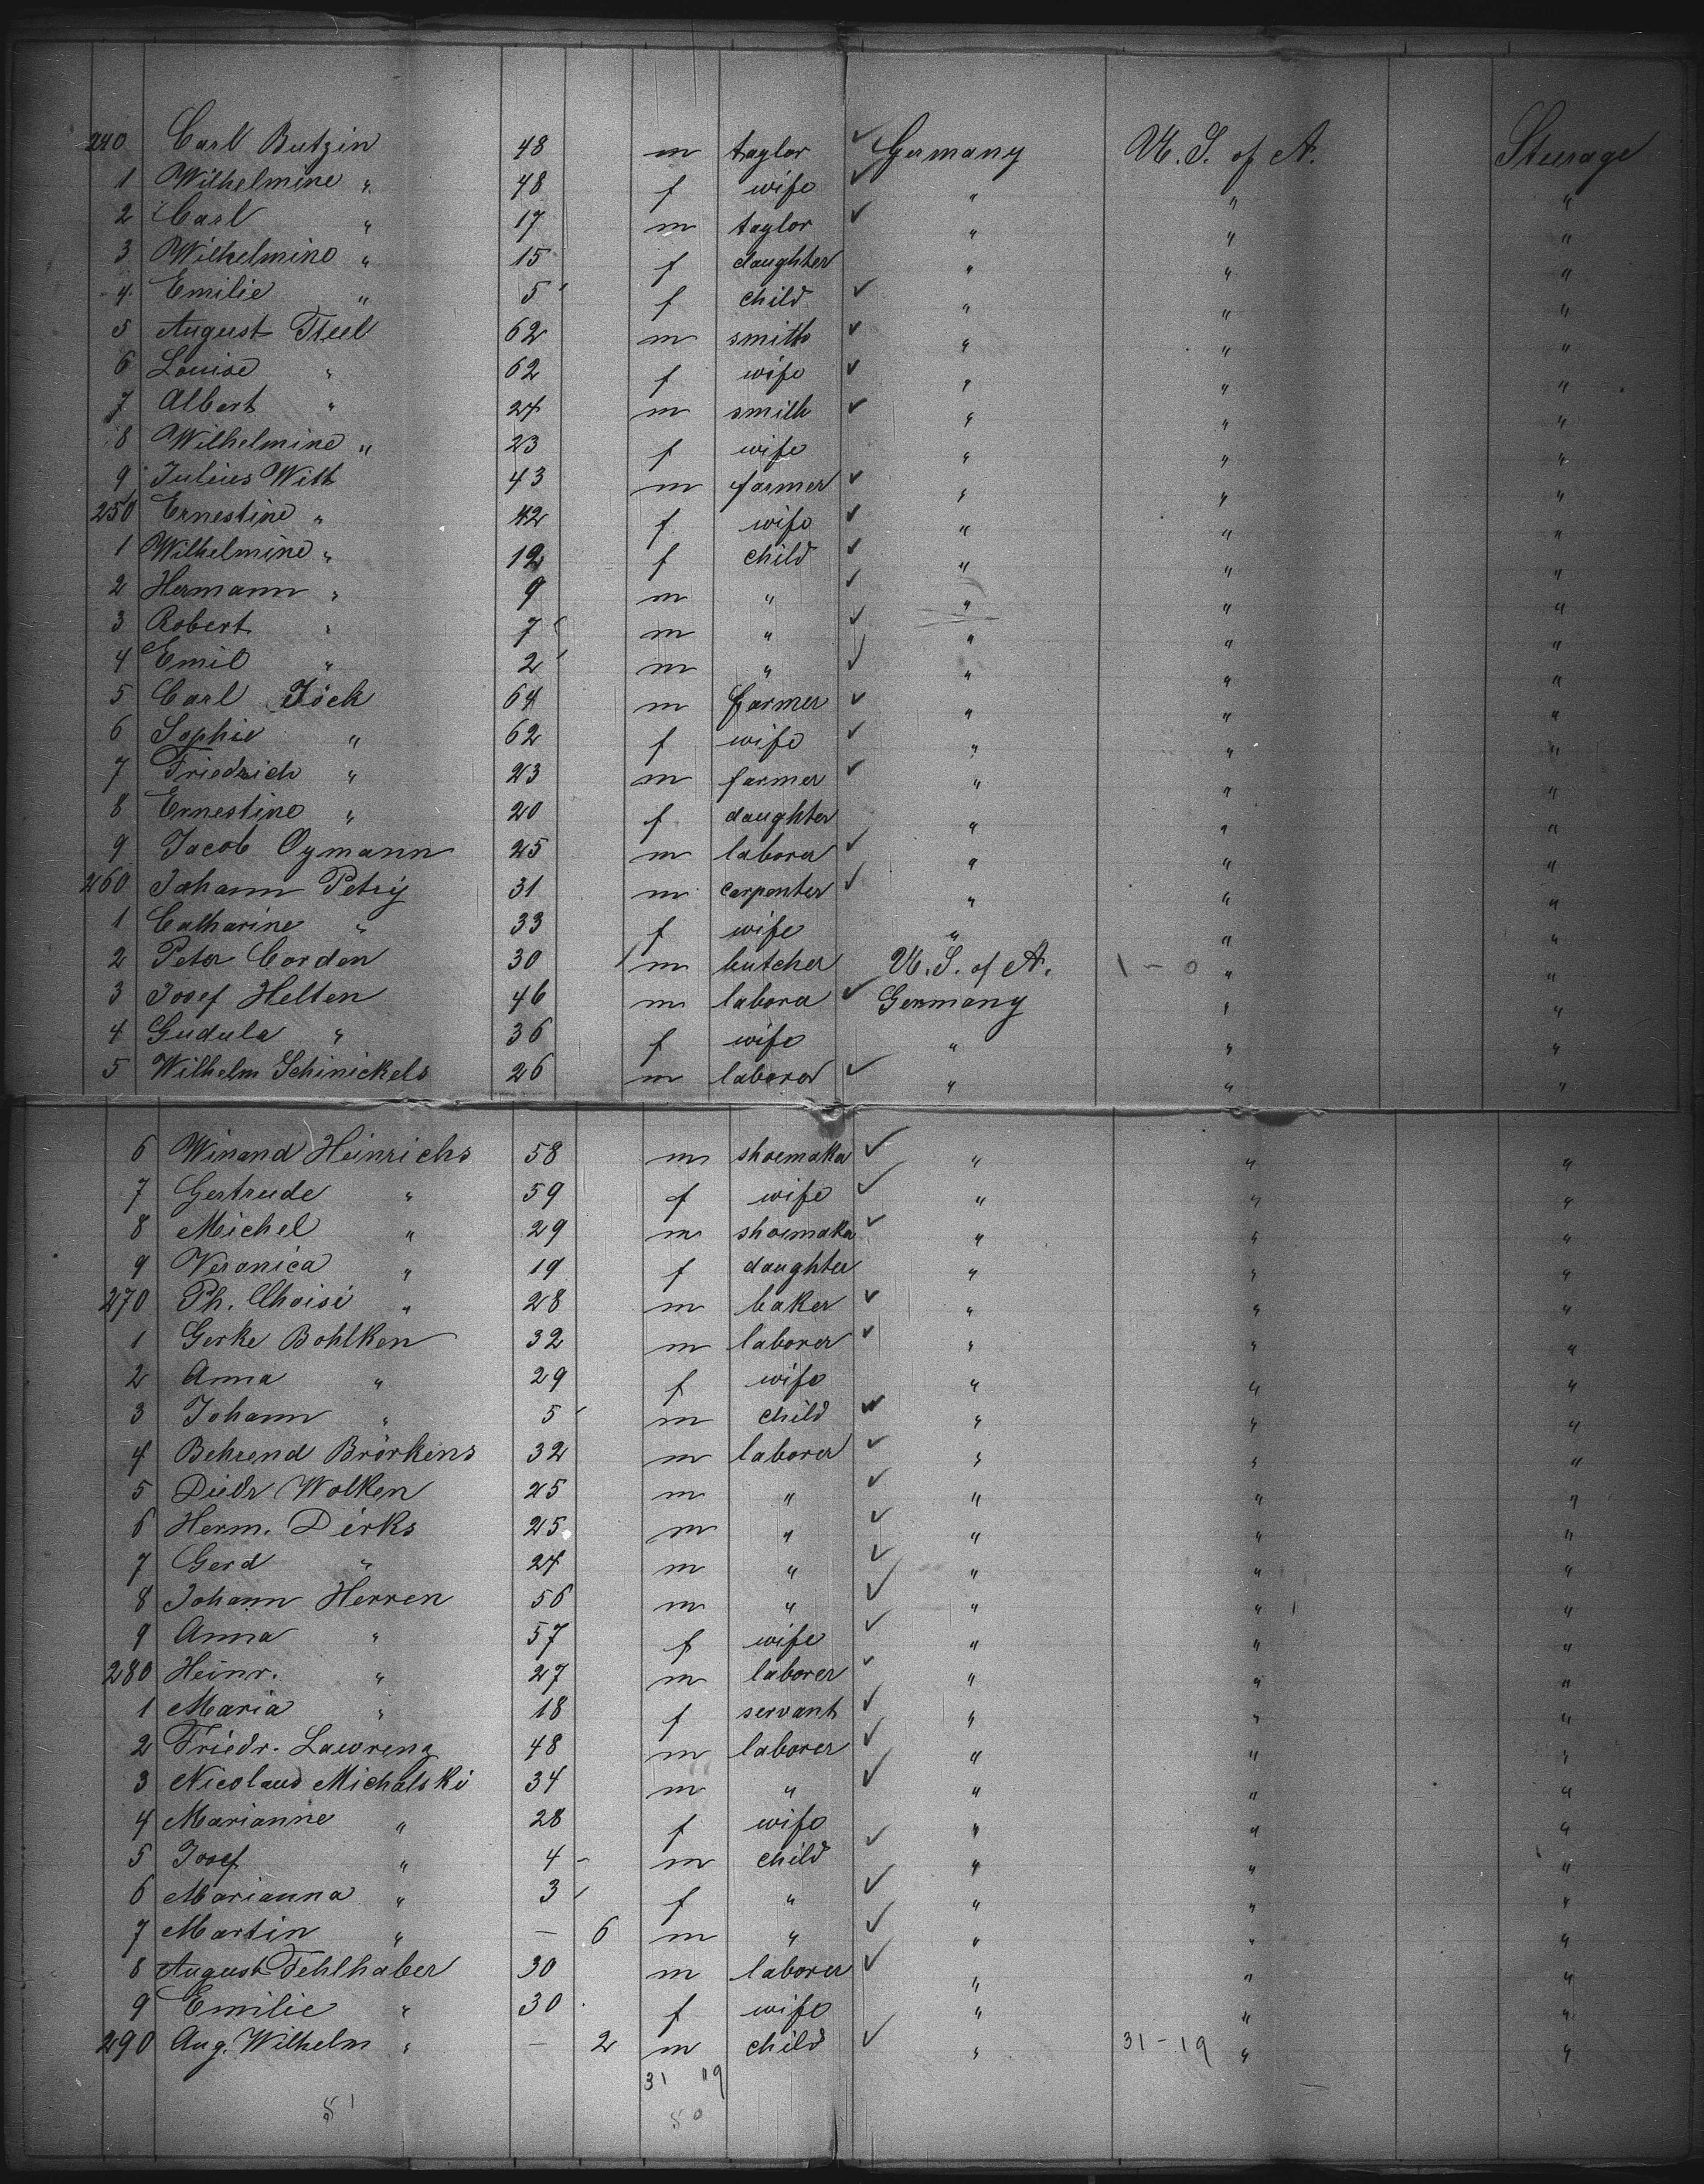 240 Carl Butzin 48 m taylor ✓ Germany U. S. of A. Steerage
1 Wilhelmine " 48 f wife ✓ " " "
2 Carl " 17 m taylor ✓ " " "
3 Wilhelmine " 15 f daughter " " "
4 Emilie " 5 f child ✓ " " "
5 August Theel 62 m smith ✓ " " "
6 Louise " 62 f wife ✓ " " "
7 Albert " 24 m smith ✓ " " "
8 Wilhelmine " 23 f wife " " "
9 Julius Witt 43 m farmer ✓ " " "
250 Ernestine " 42 f wife ✓ " " "
1 Wilhelmine " 12 f child ✓ " " "
2 Hermann " 9 m " ✓ " " "
3 Robert " 7 m " ✓ " " "
4 Emil " 2 m " ✓ " " "
5 Carl Jöck 64 m farmer ✓ " " "
6 Sophie " 62 f wife ✓ " " "
7 Friedrich " 23 m farmer ✓ " " "
8 Ernestine " 20 f daughter " " "
9 Jacob Oymann 25 m laborer ✓ " " "
260 Johann Petry 31 m carpenter ✓ " " "
1 Catharine " 33 f wife " " "
2 Peter Corden 30 m butcher U. S. of A. 1 - 0 " "
3 Josef Helten 46 m laborer ✓ Germany " "
4 Gudula " 36 f wife " " "
5 Wilhelm Schinickels 26 m laborer ✓ " " "
6 Winand Heinrichs 58 m shoemaker ✓ " " "
7 Gertrude " 59 f wife ✓ " " "
8 Michel " 29 m shoemaker ✓ " " "
9 Veronica " 19 f daughter " " "
270 Ph. Choisi " 28 m baker ✓ " " "
1 Gerke Bohlken 32 m laborer ✓ " " "
2 Anna " 29 f wife " " "
3 Johann " 5 m child ✓ " " "
4 Behrend Brörkens 32 m laborer ✓ " " "
5 Diedr Wolken 25 m " ✓ " " "
6 Herm. Dirks 25 m " ✓ " " "
7 Gerd " 24 m " ✓ " " "
8 Johann Herren 56 m " ✓ " " "
9 Anna " 57 f wife ✓ " " "
280 Heinr. " 27 m laborer ✓ " " "
1 Maria " 18 f servant ✓ " " "
2 Friedr. Lawrenz 48 m laborer ✓ " " "
3 Nicolaus Michalski 34 m " ✓ " " "
4 Marianne " 28 f wife " " "
5 Josef " 4 - m child ✓ " " "
6 Marianna " 3 f " ✓ " " "
7 Martin " - 6 m " ✓ " " "
8 August Fehlhaber 30 m laborer ✓ " " "
9 Emilie " 30 f wife " " "
290 Aug. Wilhelm " - 2 m child ✓ " 31 - 19 " "
31 19
51 50